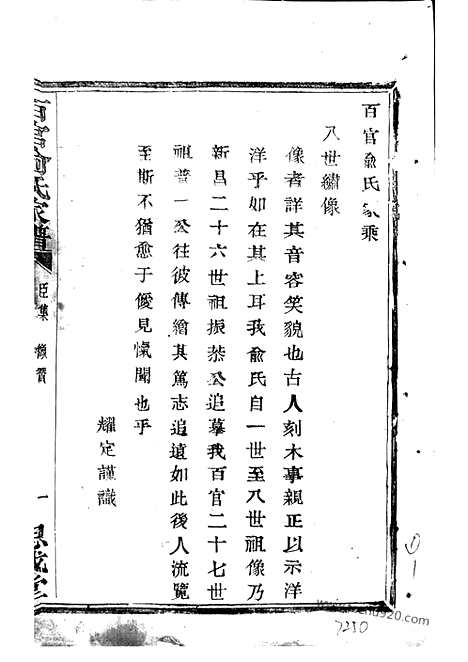 百官俞氏家乘
八世繡像
像者詳其音容笑貌也古人刻木事親正以示洋
洋乎如在其上耳我俞氏自一世至八世祖像乃
新昌二十六世祖振恭公追摹我百官二十七世
祖普一公往彼傳繪其篤志追遠如此後人流覽
至斯不猶愈于僾見愾聞也乎
耀定謹識
百官俞氏家譜
臣集
像贊
一
思成堂
7250